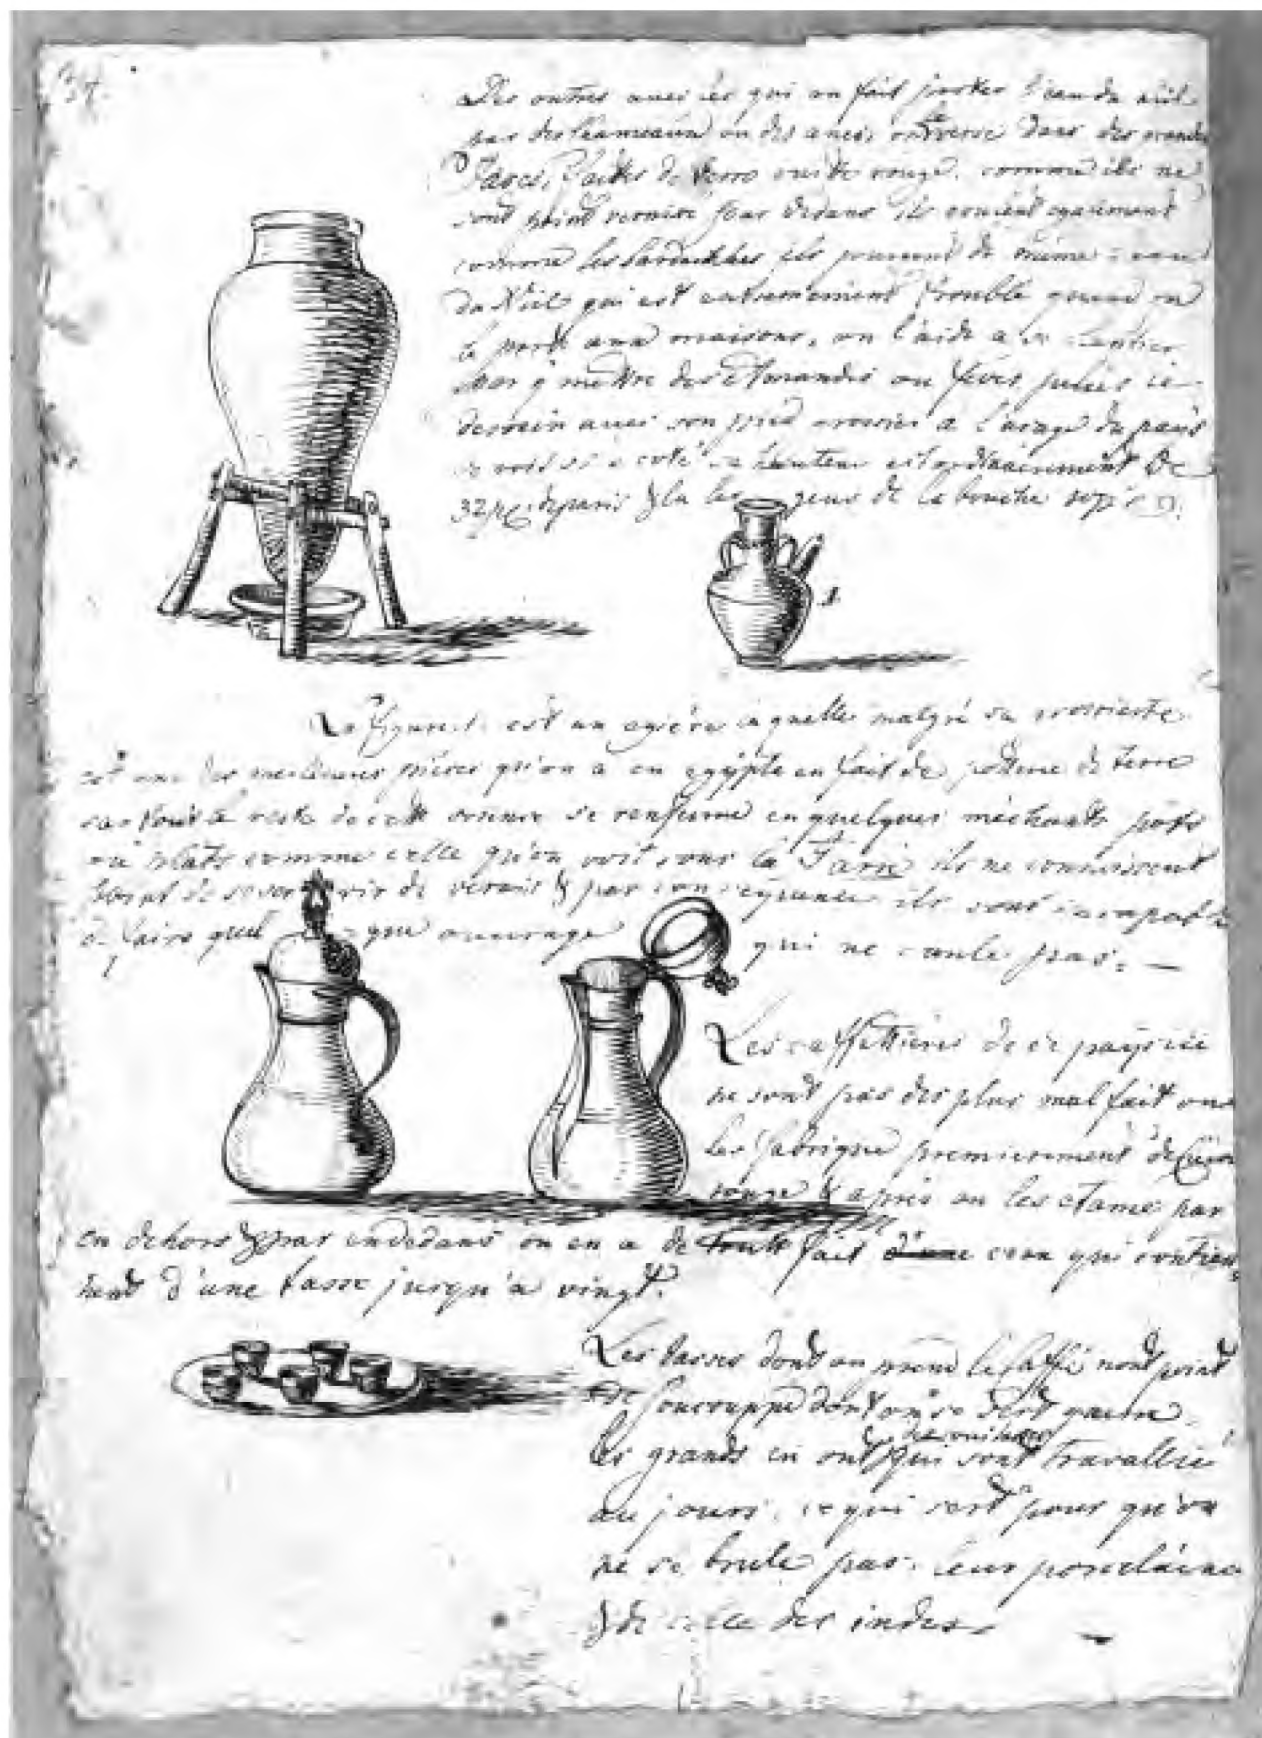 37.
Des outres avec les qui on fait porter l'eau du nil
par des Chameaux ou des anes, on la verse dans des grandes
Jares, faites de terre cuitte rouge. comme ils ne
sont point vernise par dedans ils
comme les bardackhes ils de même
du Nil qui est extremement trouble quand on
la porte aux maisons, on l'aide a se
par y mettre des Amandes ou feves
dessein avec son pied grossier a l'usage du païs
se voit ci a coté sa hauteur est ordinairement de
32 de paris & la de la bouche
1
La figure 1. est un laquelle malgré sa
est une des meilleures pieces qu'on a en egÿpte en fait de potterie de terre
car tout le reste de cette se renferme en quelques méchants pots
ou plats comme celle qu'on voit sous la Jarre ils ne connoissent
point de se servir de vernis & par consequence ils sont incapable
de faire quelque ouvrage qui ne coule pas. —
Les caffettieres de ce paÿs ici
ne sont pas des plus mal fait on
les fabrique premierement de Cuivre
rouge & apres on les etame par
en dehors & par endedans on en a de fait ceux qui contien
nent d'une tasse jusqu'a vingt.
Les tasses dont on prend le Caffé nont point
de soucouppe dont on se sert
les grands en ont qui sont travallie
au jours, ce qui sert pour qu'on
ne se brule pas. leur porcelaine
de celle des indes. —